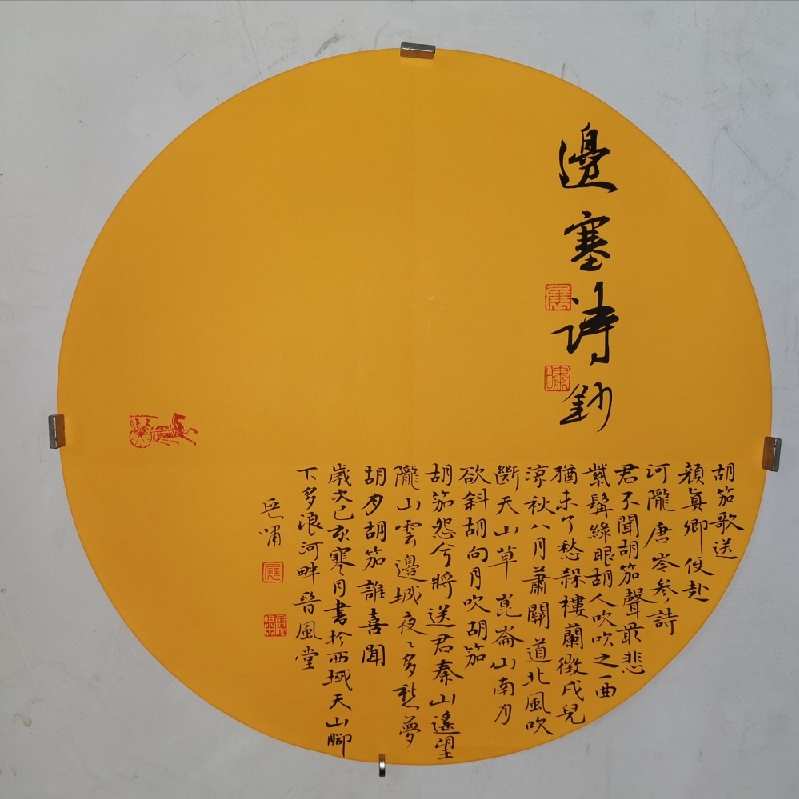 邊塞詩鈔
胡笳歌送
顏真卿使赴
河隴唐岑參詩
君不聞胡笳聲最悲
紫髯綠眼胡人吹吹之一曲
猶未了愁殺樓蘭徵戍兒
涼秋八月蕭關道北風吹
斷天山草崑崙山南月
欲斜胡向月吹胡笳
胡笳怨兮將送君秦山遙望
隴山雲邊城夜夜多愁夢
胡月胡笳誰喜聞
歲次己亥寒月書於西域天山腳
下多浪河畔晉風堂
嘯